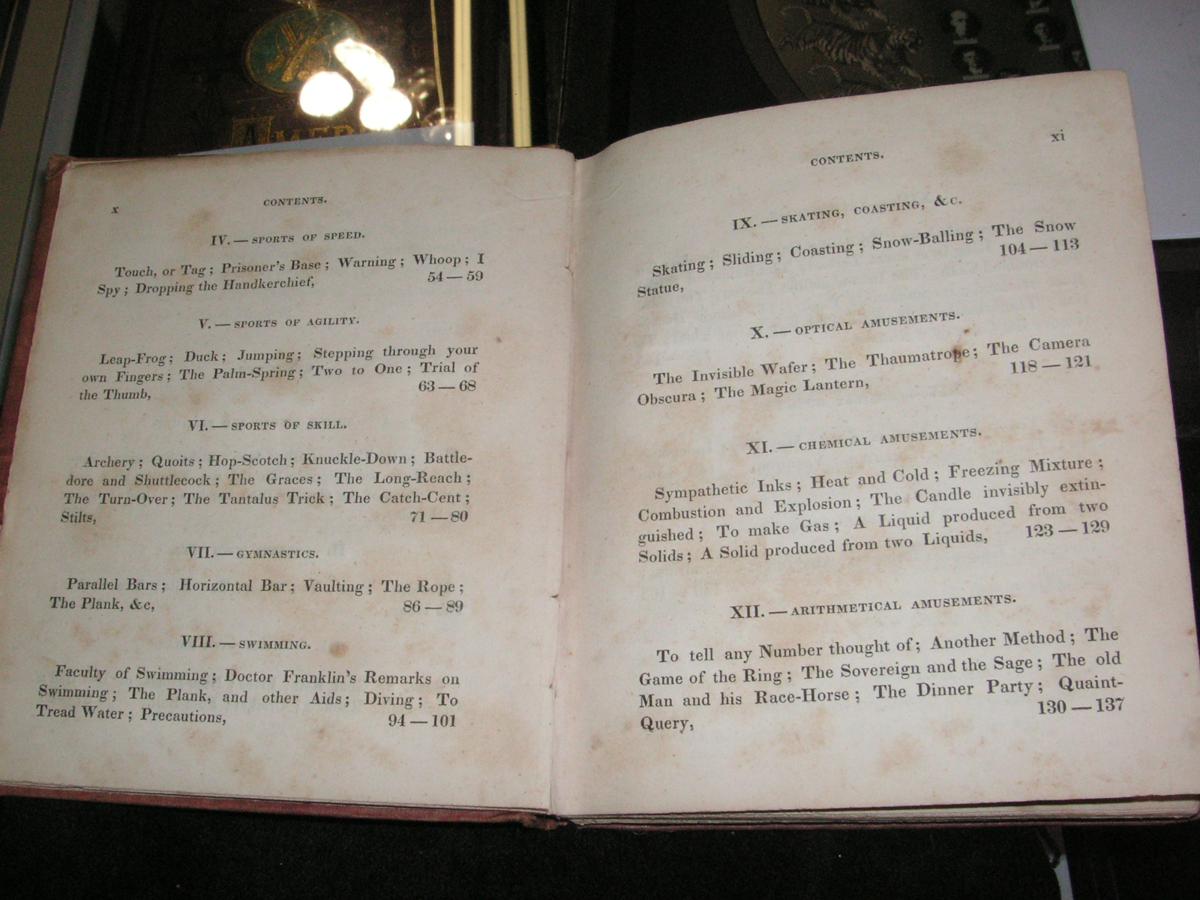 AMER
x
CONTENTS.
IV. — SPORTS OF SPEED.
Touch, or Tag; Prisoner's Base; Warning; Whoop; I
Spy; Dropping the Handkerchief, 54 — 59
V. — SPORTS OF AGILITY.
Leap-Frog; Duck; Jumping; Stepping through your
own Fingers; The Palm-Spring; Two to One; Trial of
the Thumb, 63 — 68
VI. — SPORTS OF SKILL.
Archery; Quoits; Hop-Scotch; Knuckle-Down; Battle-
dore and Shuttlecock; The Graces; The Long-Reach;
The Turn-Over; The Tantalus Trick; The Catch-Cent;
Stilts, 71 — 80
VII. — GYMNASTICS.
Parallel Bars; Horizontal Bar; Vaulting; The Rope;
The Plank, &c, 86 — 89
VIII. — SWIMMING.
Faculty of Swimming; Doctor Franklin's Remarks on
Swimming; The Plank, and other Aids; Diving; To
Tread Water; Precautions, 94 — 101
CONTENTS.
xi
IX. — SKATING, COASTING, &c.
Skating; Sliding; Coasting; Snow-Balling; The Snow
Statue, 104 — 113
X. — OPTICAL AMUSEMENTS.
The Invisible Wafer; The Thaumatrope; The Camera
Obscura; The Magic Lantern, 118 — 121
XI. — CHEMICAL AMUSEMENTS.
Sympathetic Inks; Heat and Cold; Freezing Mixture;
Combustion and Explosion; The Candle invisibly extin-
guished; To make Gas; A Liquid produced from two
Solids; A Solid produced from two Liquids, 123 — 129
XII. — ARITHMETICAL AMUSEMENTS.
To tell any Number thought of; Another Method; The
Game of the Ring; The Sovereign and the Sage; The old
Man and his Race-Horse; The Dinner Party; Quaint-
Query, 130 — 137